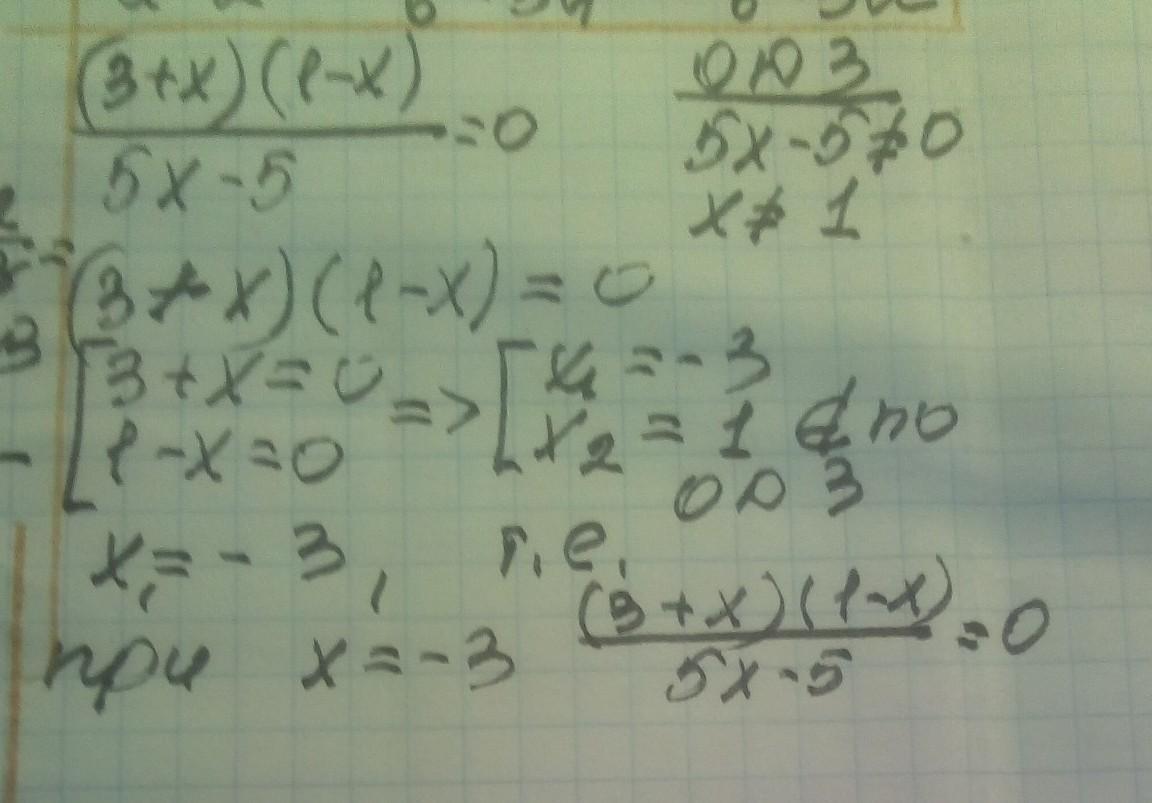 (3+x)(1-x)/5x-5=0
ОДЗ
5x-5≠0
x≠1
(3+x)(1-x)=0
[3+x=0
1-x=0
=> [x₁=-3
x₂=1 ∉ по
ОДЗ
x₁=-3, т.е.
при x=-3 (3+x)(1-x)/5x-5=0